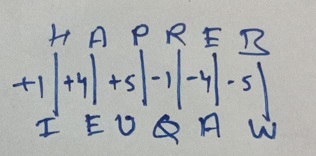 H A P R E B
+1 +4 +5 -1 -4 -5
I E U Q A W